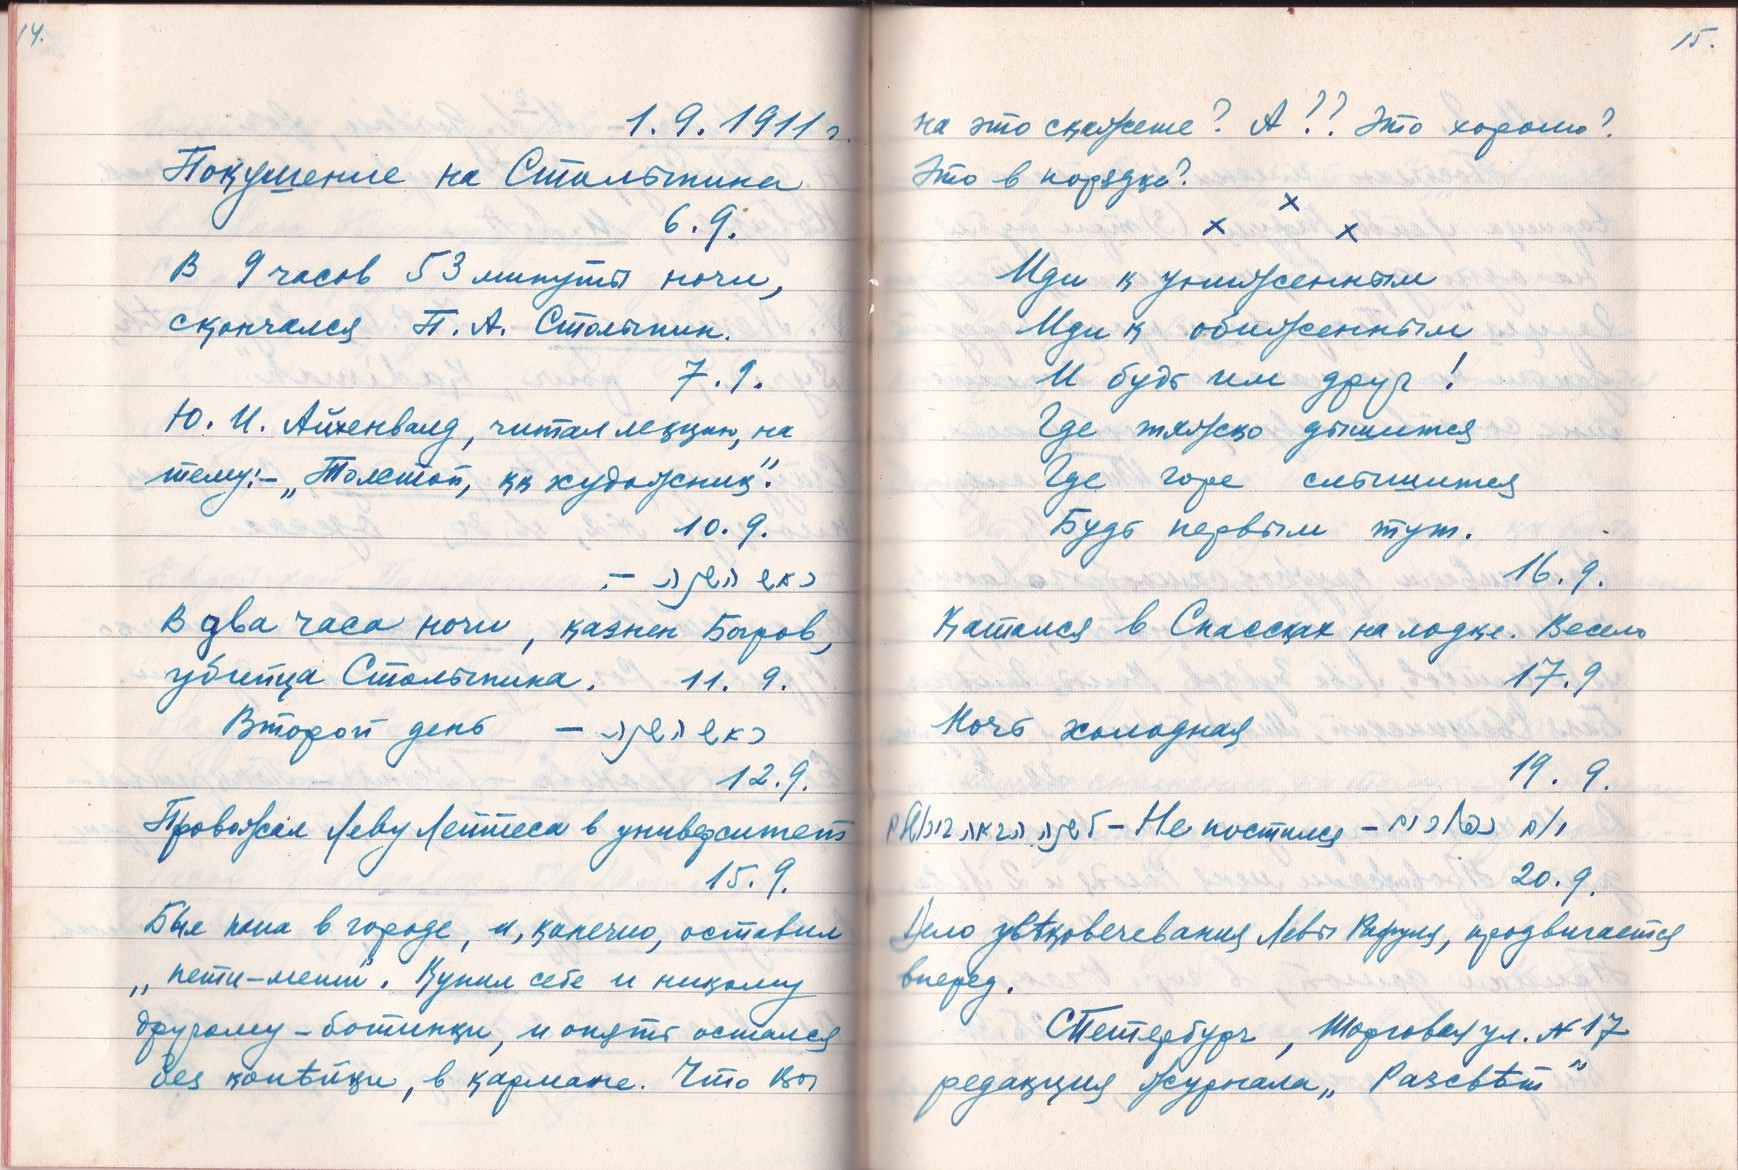 14.
1.9.1911 г.
Покушение на Столыпина
6.9.
В 9 часов 53 минуты ночи,
скончался П. А. Столыпин.
7.9.
Ю. И. Айхенвалд, читал лекцию, на
тему:– „Толстой, кк художник".
10.9.
– ראש השנה
В два часа ночи, казнен Богров,
убийца Столыпина. 11. 9.
Второй день – ראש השנה
12.9.
Провожал Леву Лейтеса в университет
15.9.
Был папа в городе, и, конечно, оставил
„пети-мети". Купил себе и никому
другому – ботинки, и опять остался
без копѣйки, в кармане. Что вы
15.
на это скажете? А!?? Это хорошо?
Это в порядке?
x x x
Иди к униженным
Иди к обиженным
И будь им друг!
Где тяжко дышится
Где горе слышится
Будь первым тут.
16.9.
Катался в Спасских на лодке. Весело
17.9
Ночь холодная
19. 9.
– Не постился –
20.9.
Дело увѣковечевания Левы, продвигается
вперед.
СПетербург, Торговая ул. № 17
редакция журнала „Разсвѣт"